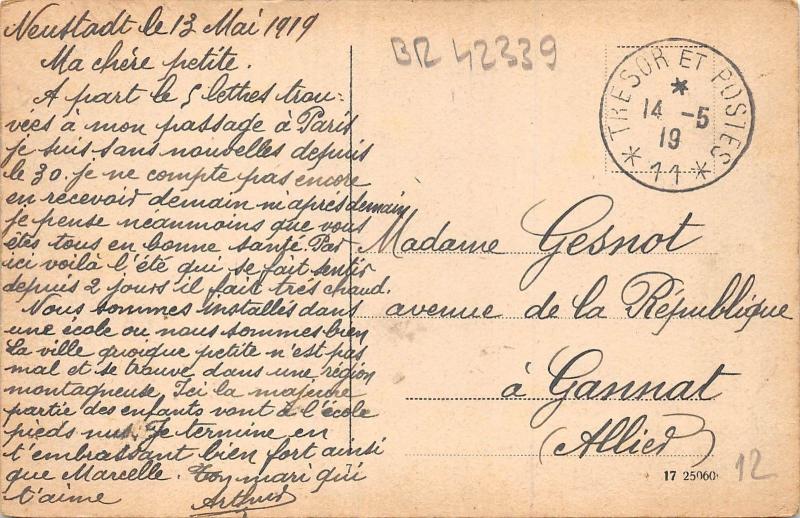 Neustadt le 13 Mai 1919
Ma chère petite.
A part le 5 lettres trou-
vées à mon passage à Paris
je suis sans nouvelles depuis
le 30. je ne compte pas encore
en recevoir demain ni après demain
je pense néanmoins que vous
êtes tous en bonne santé. Par
ici voilà l'été qui se fait sentir
depuis 2 jours il fait très chaud.
Nous sommes installés dans
une école ou nous sommes bien
La ville quoique petite n'est pas
mal et se trouve dans une région
montagneuse. Ici la majeure
partie des enfants vont à l'école
pieds nus. Je termine en
t'embrassant bien fort ainsi
que Marcelle. Ton mari qui
t'aime Arthur
BR 42339
* TRESOR ET POSTES *
*
14 -5
19
11
Madame Gesnot
avenue de la République
à Gannat
(Allier)
17 25060
12